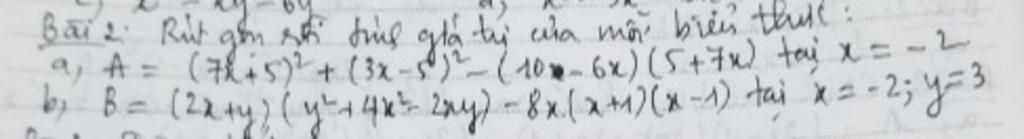 Bài 2: Rút gọn rồi tính giá trị của mỗi biểu thức:
a, A = (7x+5)² + (3x-5)² - (10 - 6x)(5+7x) tại x = -2
b, B = (2x+y)(y²+4x²-2xy) - 8x(x+1)(x-1) tại x = -2; y=3